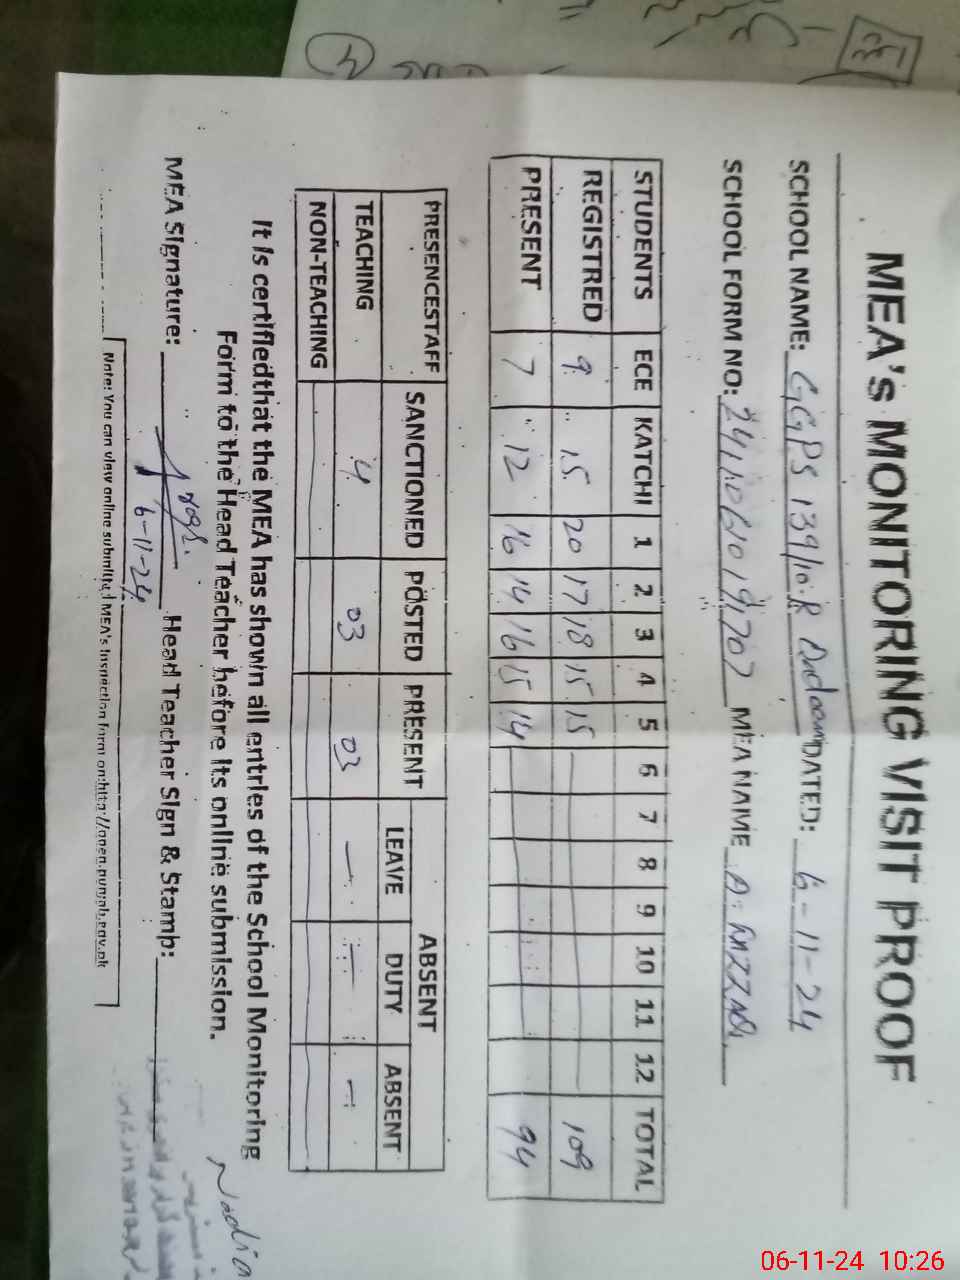 MEA's MONITORING VISIT PROOF
SCHOOL NAME: GGPS 139/10.R DATED: 6-11-24
SCHOOL FORM NO: MEA NAME A. RAZZAQ
STUDENTS ECE KATCHI 1 2 3 4 5 6 7 8 9 10 11 12 TOTAL
REGISTRED 9 15 20 17 18 15 15 109
PRESENT 7 12 16 14 16 15 14 94
PRESENCESTAFF SANCTIONED POSTED PRESENT ABSENT
LEAVE DUTY ABSENT
TEACHING 4 03 03 — — —
NON-TEACHING
It is certifiedthat the MEA has shown all entries of the School Monitoring
Form to the Head Teacher before its online submission.
Nadia
MEA Signature: Head Teacher Sign & Stamp:
6-11-24
Note: You can view online submitted MEA's Inspection form on:http://open.punjab.gov.pk
06-11-24 10:26